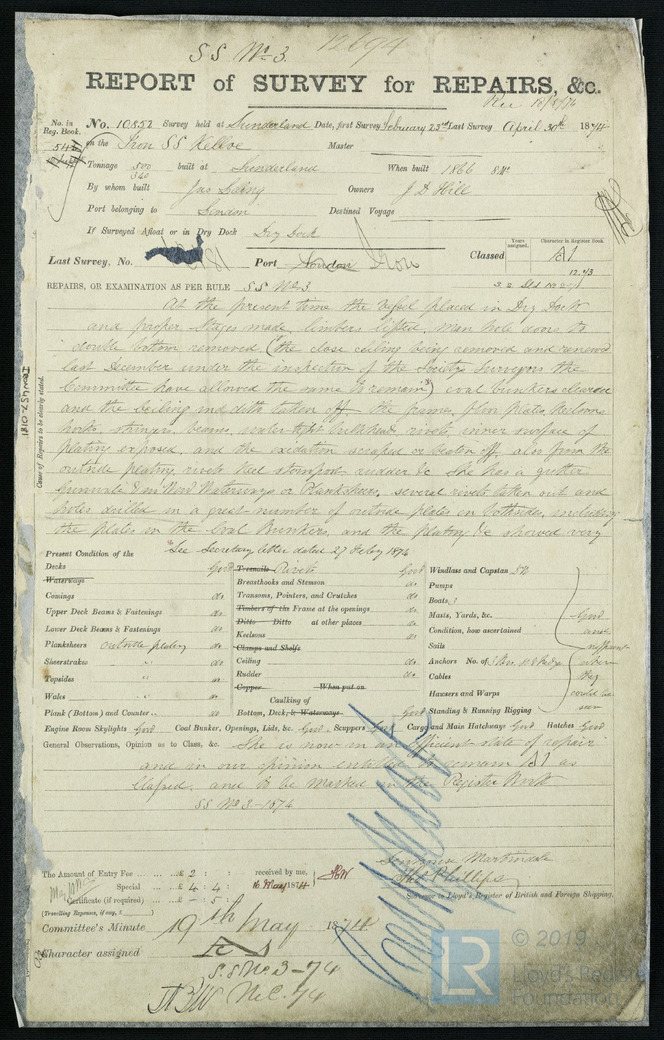 SS No 3. 12694
REPORT of SURVEY for REPAIRS, &c.
Rec 18/5/74
No. in Reg. Book.
No. 10852 Survey held at Sunderland Date, first Survey February 25th Last Survey April 30th 1874
on the Iron SS Kelloe Master
Tonnage 500 340 built at Sunderland When built 1866
By whom built Jas Laing Owners J D Hill
Port belonging to London Destined Voyage
If Surveyed Afloat or in Dry Dock Dry Dock
Last Survey, No. Port London
Classed
Years assigned.
Character in Register Book.
A1
12.73
REPAIRS, OR EXAMINATION AS PER RULE SS No 3
Cause of Repairs to be clearly stated.
At the present time the Vessel placed in Dry Dock
and proper stages made, limbers lifted, man hole doors to
double bottom removed (the close ceiling being removed and renewed
last December under the inspection of the Society's Surveyors the
Committee have allowed the same to remain*) coal bunkers cleared
and the ceiling in ditto taken off the frames, floor plates, keelsons
hooks, stringers, beams, water tight bulkheads, rivets, inner surface of
plating exposed, and the oxidation scraped or beaten off, also from the
outside plating, rivets keel sternpost rudder &c She has a gutter
Gunwale & no Wood Waterways or Planksheer, several rivets taken out and
holes drilled in a great number of outside plates on both sides, including
the plates in the Coal Bunkers, and the plating &c showed very
*See Secretary letter dated 27 Feby 1874
Present Condition of the
Decks Good
Waterways
Comings do
Upper Deck Beams & Fastenings do
Lower Deck Beams & Fastenings do
Planksheers outside plating do
Sheerstrakes " do
Topsides " do
Wales " do
Plank (Bottom) and Counter do
Engine Room Skylights Good
Treenails Rivets Good
Breasthooks and Stemson do
Transoms, Pointers, and Crutches do
Timbers of the Frame at the openings do
Ditto Ditto at other places do
Keelsons do
Clamps and Shelfs
Ceiling do
Rudder do
Copper When put on
Caulking of
Bottom, Deck, & Waterways Good
Coal Bunker, Openings, Lids, &c. Good Scuppers Good Cargo and Main Hatchways Good Hatches Good
Windlass and Capstan
Pumps
Boats
Masts, Yards, &c.
Condition, how ascertained
Sails
Anchors No. of
Cables
Hawsers and Warps
Standing & Running Rigging
Good
and
sufficient
where
they
could be
seen
General Observations, Opinion as to Class, &c. She is now in an Efficient state of repair
and in our opinion entitled to remain A1 as
Classed, and to be marked in the Register Book
SS No 3-1874
Martindale
Phillips
Surveyor to Lloyd's Register of British and Foreign Shipping.
The Amount of Entry Fee £ 2 : :
Special £ 4 : 4 :
Certificate (if required) £ - : 5 :
(Travelling Expenses, if any, £ )
received by me,
16 May 1874
Committee's Minute 19th May 1874
Character assigned A1
S.S No 3-74